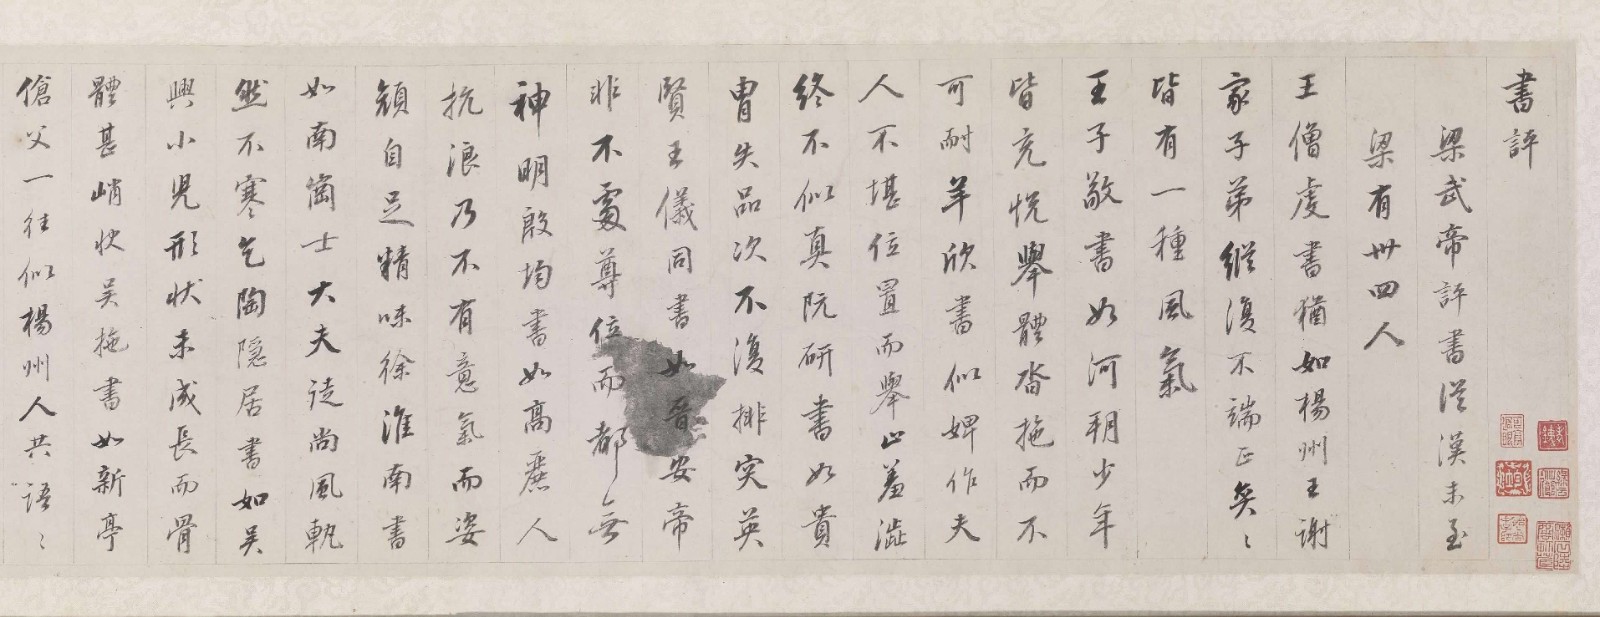 書評
梁武帝評書從漢末至
梁有卅四人
王僧虔書猶如楊州王謝
家子弟縱復不端正奕〻
皆有一種風氣
王子敬書如河朔少年
皆充悅舉體沓拖而不
可耐羊欣書似婢作夫
人不堪位置而舉止羞澁
終不似真阮研書如貴
胄失品次不復排突英
賢王儀同書如晉安帝
非不處尊位而都無
神明殷均書如高麗人
抗浪乃不有意氣而姿
顏自足精味徐淮南書
如南崗士大夫徒尚風軌
然不寒乞陶隱居書如吳
興小兒形狀未成長而骨
體甚峭快吳拖書如新亭
傖父一往似楊州人共語〻